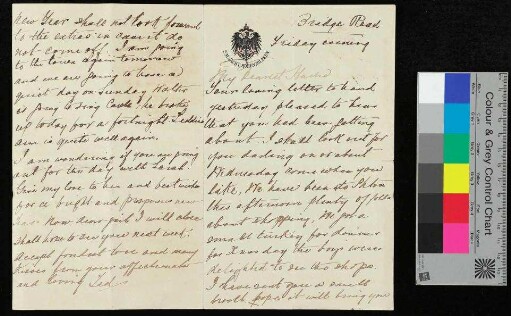 Friday evening
My dearest
Your loving letter to hand
yesterday pleased to hear
that you had been getting
about. I shall look out for
you darling on or about
Wednesday come when you
like. We have been to
this afternoon plenty of folks
about shopping. We got a
small turkey for dinner
for Sunday the boys were
delighted to see the shops.
I have sent you a small
hope it will bring you
New Year shall not look forward
to the extras in case it do
not come off. I am going
to the town again tomorrow
and we are going to have a
quiet day on Sunday Walter
is going to sing he broke
up today for a fortnight
arm is quite well again.
I am wondering if you are going
out for the day with Sarah.
Give my love to her and best wishes
for a bright and prosperous new
year. Now dear girl I will close
shall hope to see you next week.
Accept fondest love and many
kisses from your affectionate
and loving
Colour & Grey Control Chart